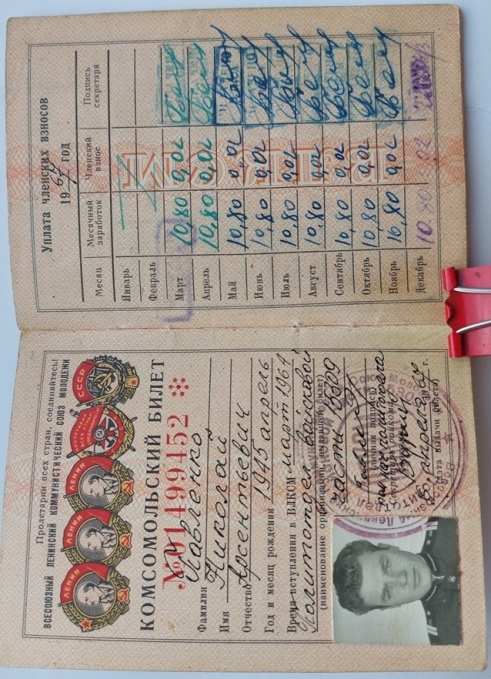 Пролетарии всех стран, соединяйтесь!
ВСЕСОЮЗНЫЙ ЛЕНИНСКИЙ КОММУНИСТИЧЕСКИЙ СОЮЗ МОЛОДЕЖИ
ЛЕНИН
ЛЕНИН
ЛЕНИН
СССР
КОМСОМОЛЬСКИЙ БИЛЕТ
№ 01499452
Фамилия Павленко
Имя Николай
Отчество Арсентьевич
Год и месяц рождения 1945 апрель
Время вступления в ВЛКСМ март 1964
Политотдел войсковой
(наименование организации, выдавшей билет)
части
(личная подпись)
Уплата членских взносов
1967 год
Месяц
Месячный заработок
Членский взнос
Подпись секретаря
Январь
Февраль
Март 10,80 0,02
Апрель 10,80 0,02
Май 10,80 0,02
Июнь 10,80 0,02
Июль 10,80 0,02
Август 10,80 0,02
Сентябрь 10,80 0,02
Октябрь 10,80 0,02
Ноябрь 10,80 0,02
Декабрь